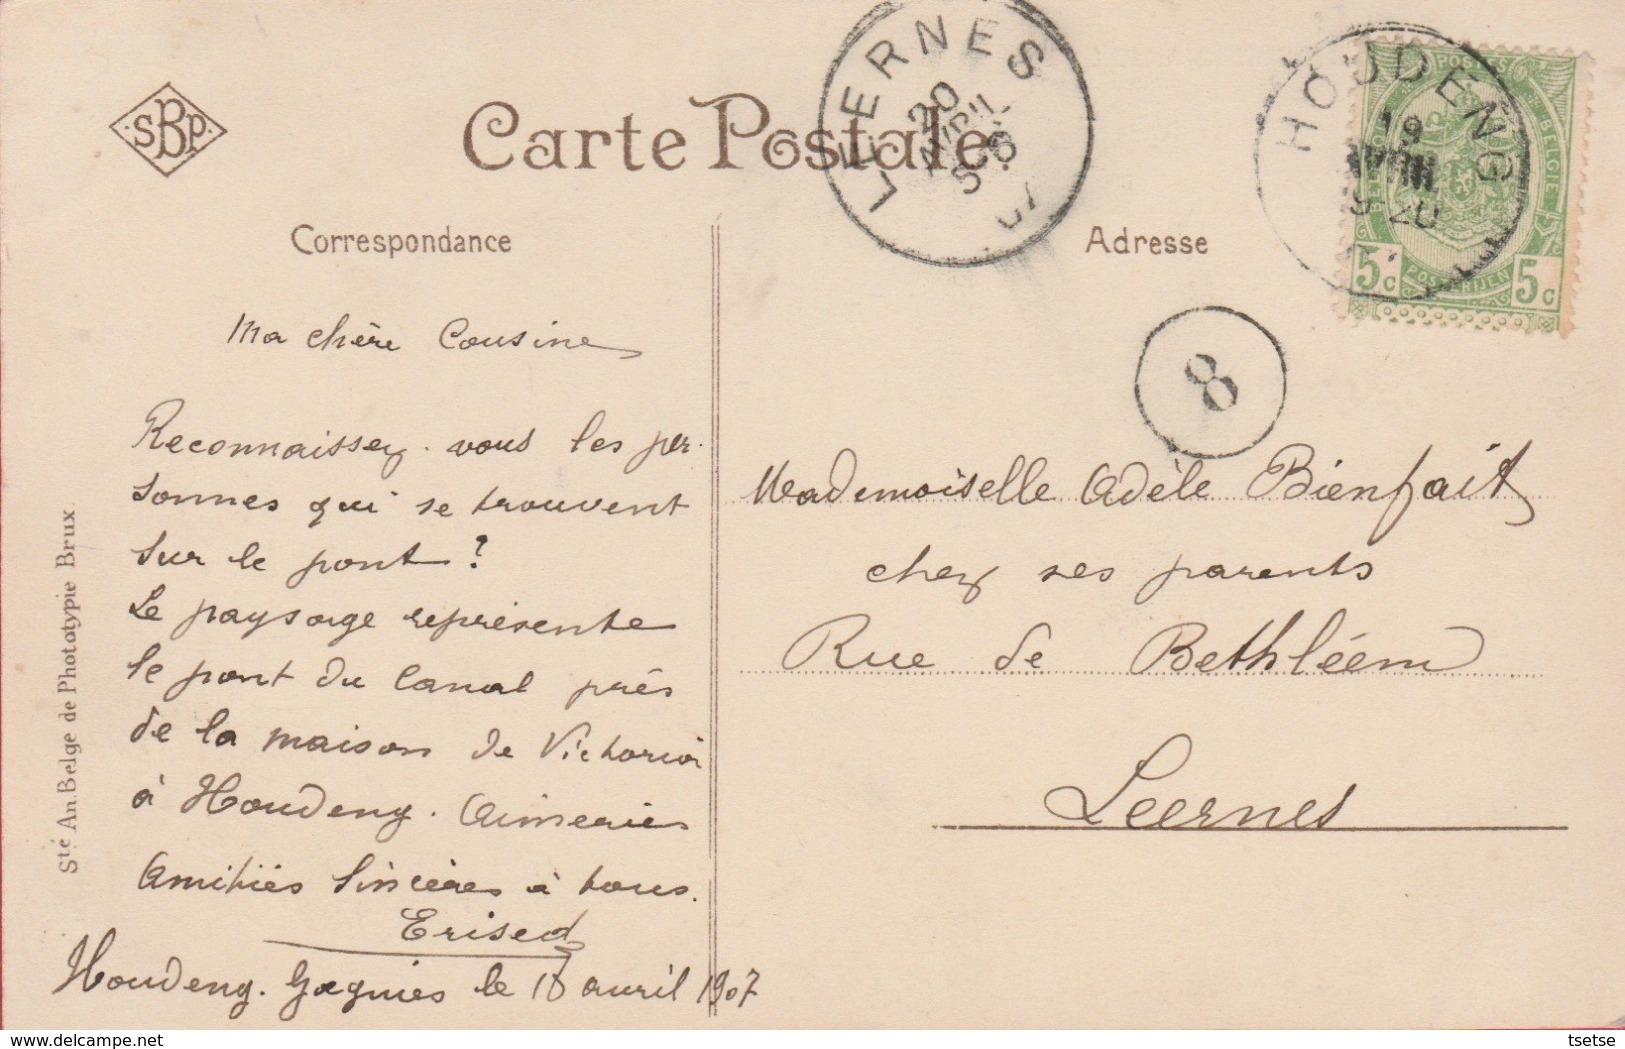 SBP
Carte Postale
LEERNES
20
AVRIL
07
HOUDENG
19
AVRIL
9-20
POSTES
BELGIQUE
BELGIE
POSTERIJEN
5c
5c
8
Correspondance
Adresse
Ma chère Cousine
Reconnaissez-vous les per-
sonnes qui se trouvent
sur le pont ?
Le paysage représente
le pont du Canal près
de la maison de Victoria
à Houdeng. Aimeries
Amitiés sincères à tous.
Erised
Houdeng. Gægnies le 18 avril 1907
Mademoiselle Adèle Bienfait
chez ses parents
Rue de Bethléem
Leernes
Sté An. Belge de Phototypie Brux.
delcampe.net
tsetse